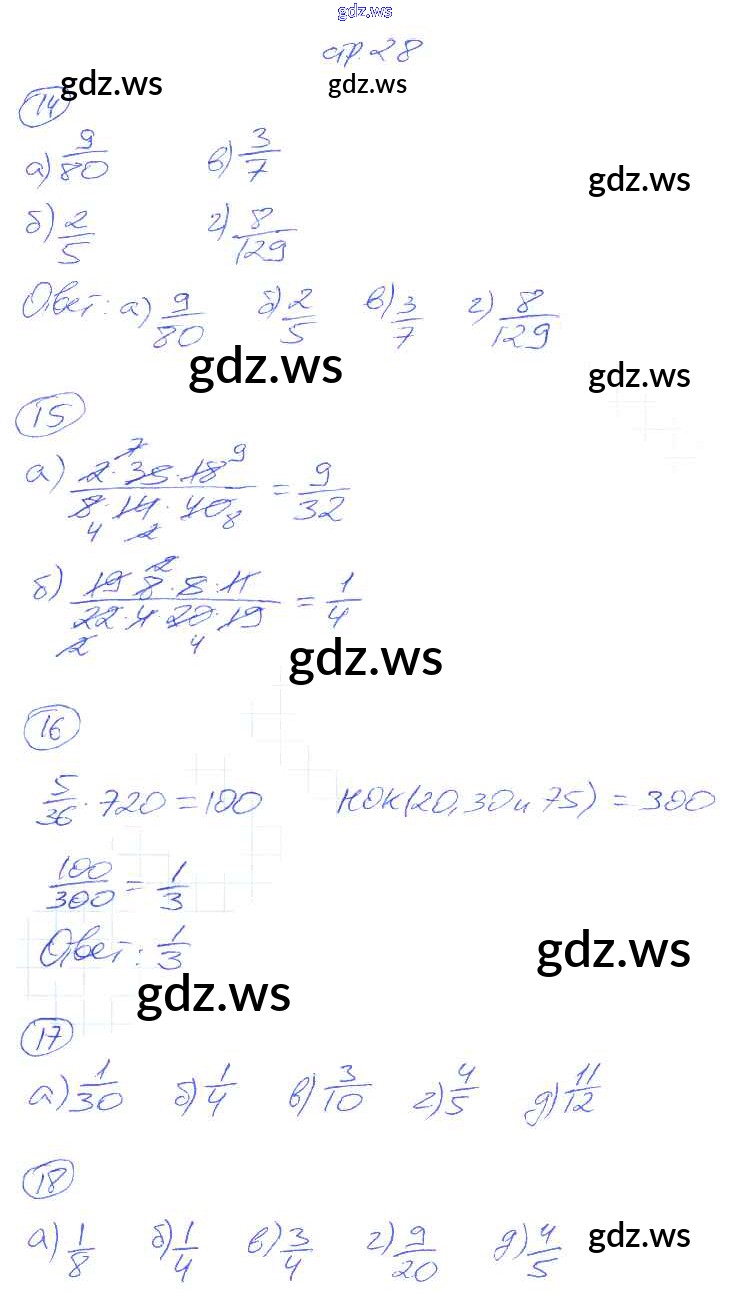 gdz.ws
стр. 28
gdz.ws gdz.ws
14
а) 9/80 в) 3/7
gdz.ws
б) 2/5 г) 8/129
Ответ: а) 9/80 б) 2/5 в) 3/7 г) 8/129
gdz.ws gdz.ws
15
а) 2·35·18/8·14·40 = 9/32
7 9
4 2 8
б) 19 8·5·11/22·4·20·19 = 1/4
2
2 4
gdz.ws
16
5/36 · 720 = 100 НОК(20,30 и 75) = 300
100/300 = 1/3
Ответ: 1/3
gdz.ws
gdz.ws
17
а) 1/30 б) 1/4 в) 3/10 г) 4/5 д) 11/12
18
а) 1/8 б) 1/4 в) 3/4 г) 9/20 д) 4/5
gdz.ws